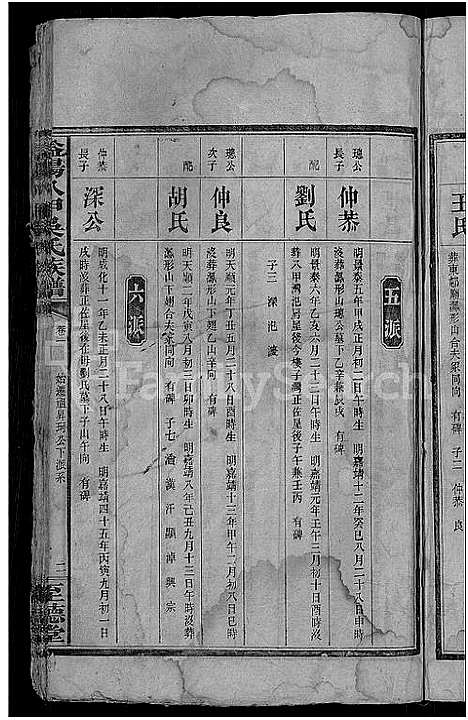 王氏
葬東鄰廟瓢形山合夫冢同向 有碑 子二 仲恭 仲良
五派
璁公長子
仲恭
明景泰五年甲戌正月初二日午時生 明嘉靖十二年癸巳八月二十八日申時
歿葬瓢形山璁公墓下乙山辛兼辰戌 有碑
配
劉氏
明景泰六年乙亥六月二十三日午時生 明嘉靖元年壬午三月初十日酉時歿
葬八甲灣汜局星後今樓子灣正佐屋後子午兼壬丙 有碑
子三 深 汜 波
璁公次子
仲良
明天順元年丁丑五月二十八日酉時生 明嘉靖十三年甲午二月初八日巳時
歿葬瓢形山下翅乙山辛向 有碑
配
胡氏
明天順二年戊寅八月初二日卯時生 明嘉靖八年己丑九月十三日午時歿葬
瓢形山下翅合夫冢同向 有碑 子七 漁 漢 汗 顯 淖 興 宗
六派
仲恭長子
深公
明成化十一年乙未正月二十八日午時生 明嘉靖四十五年丙寅九月初一日
戌時歿葬正佐屋後在母劉氏墓下子山午向 有碑
益陽八甲吳氏族譜
卷二
始遷祖昇珂公下派系
二
至德堂
FamilySearch